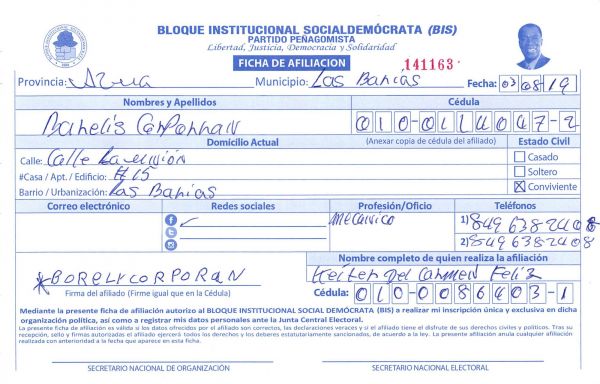 BLOQUE INSTITUCIONAL SOCIALDEMÓCRATA (BIS)
PARTIDO PEÑAGOMISTA
Libertad, Justicia, Democracia y Solidaridad
FICHA DE AFILIACION
141163
Provincia: Azua Municipio: Las Barias Fecha: 03 08 19
Nombres y Apellidos Cédula
010-0114047-2
Domicilio Actual (Anexar copia de cédula del afiliado) Estado Civil
Calle: Calle La unión Casado
#Casa / Apt. / Edificio: #15 Soltero
Barrio / Urbanización: Las Barias X Conviviente
Correo electrónico Redes sociales Profesión/Oficio Teléfonos
mecanico 1) 849 6382408
2) 849 6382408
Nombre completo de quien realiza la afiliación
Heiter Del Carmen Feliz
BORELY CORPORAN
Firma del afiliado (Firme igual que en la Cédula) Cédula: 010-0086403-1
Mediante la presente ficha de afiliación autorizo al BLOQUE INSTITUCIONAL SOCIAL DEMÓCRATA (BIS) a realizar mi inscripción única y exclusiva en dicha
organización política, así como a registrar mis datos personales ante la Junta Central Electoral.
La presente ficha de afiliación es válida si los datos ofrecidos por el afiliado son correctos, las declaraciones veraces y si el afiliado tiene el disfrute de sus derechos civiles y políticos. Tras su
recepción, sello y firmas autorizado el afiliado ejercerá todos los derechos y los deberes estatutariamente sancionados, de acuerdo a la ley. La presente afiliación anula cualquier afiliación
realizada con anterioridad a la fecha que aparece en esta ficha.
SECRETARIO NACIONAL DE ORGANIZACIÓN SECRETARIO NACIONAL ELECTORAL